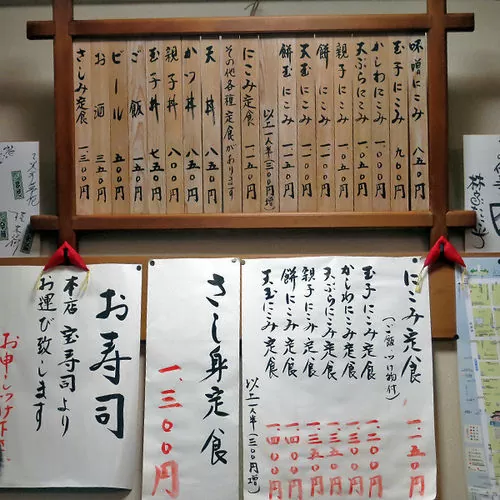 味噌にこみ 八五〇円
玉子にこみ 九〇〇円
かしわにこみ 一、〇五〇円
天ぷらにこみ 一、〇五〇円
親子にこみ 一、〇五〇円
餅にこみ
天玉にこみ 一、一〇〇円
餅玉にこみ
以上一人半(三〇〇円増)
にこみ定食 一、一五〇円
その他各種定食があります
天丼 八五〇円
かつ丼 八五〇円
親子丼 八〇〇円
玉子丼 七五〇円
ご飯 一五〇円
ビール 五〇〇円
お酒 三五〇円
さしみ定食 一、三〇〇円
にこみ定食 一、一五〇円
(ご飯、つけ物付)
玉子にこみ定食 一、二〇〇円
かしわにこみ定食 一、三五〇円
天ぷらにこみ定食 一、三五〇円
親子にこみ定食 一、三五〇円
餅にこみ定食 一、四〇〇円
天玉にこみ定食 一、四〇〇円
以上一人半(三〇〇円増)
さし身定食
一、三〇〇円
お寿司
本店宝寿司より
お運び致します
お申しつけ下